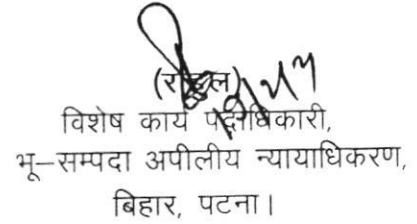 विशेष कार्य पदाधिकारी,
भू–सम्पदा अपीलीय न्यायाधिकरण,
बिहार, पटना।